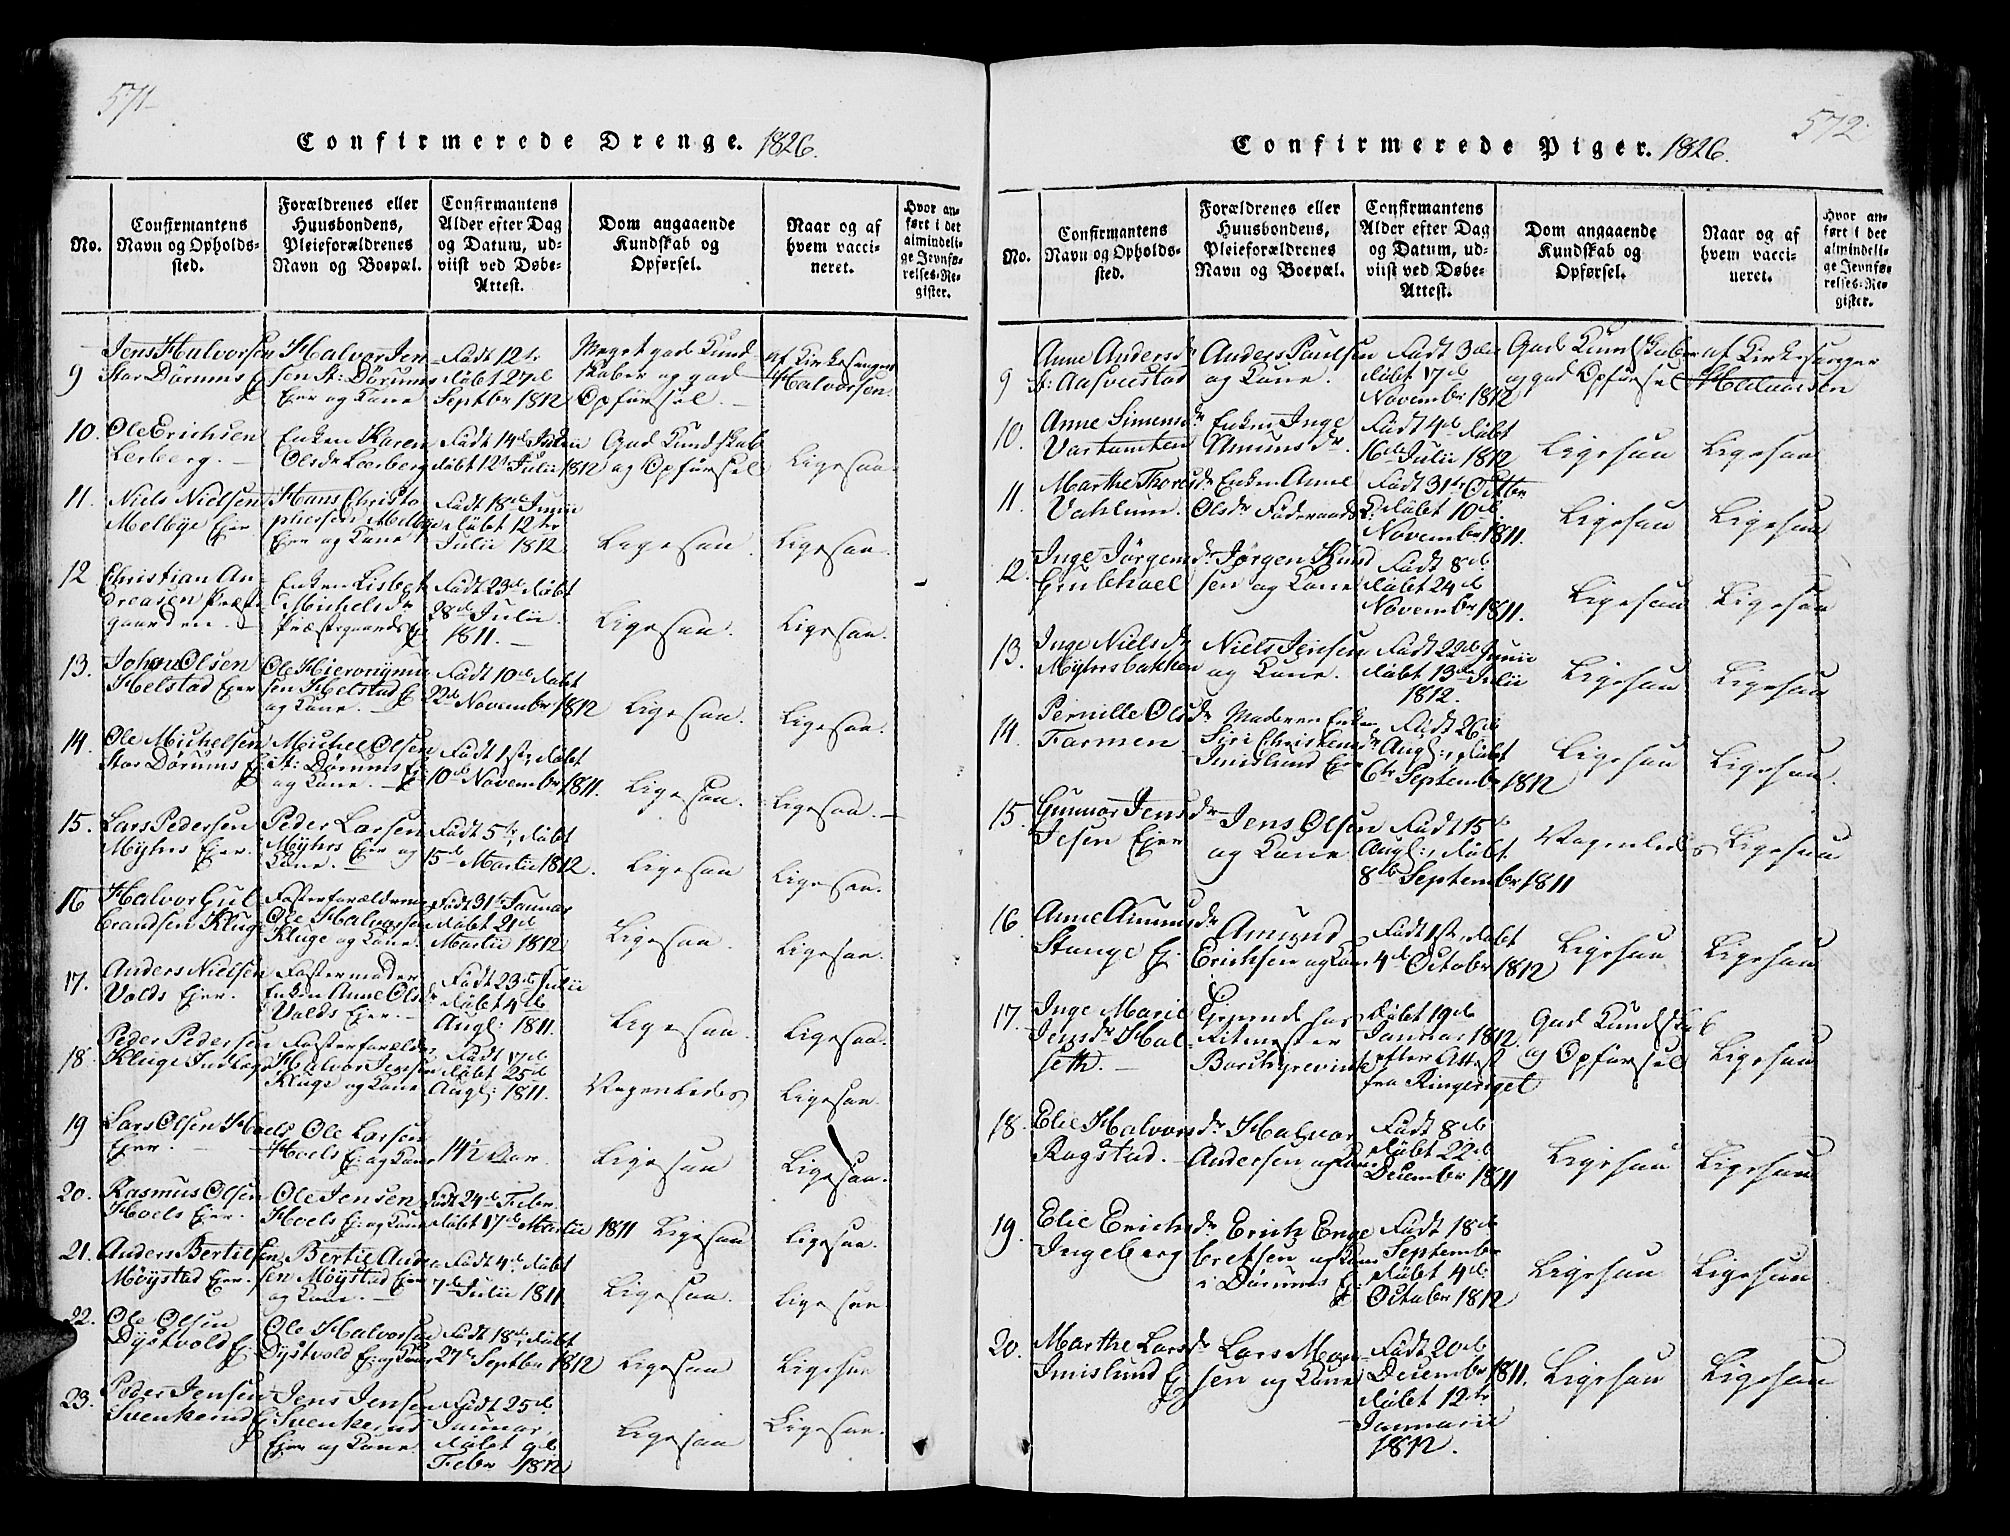 571
Confirmerede Drenge. 1826.
No.
Confirmantens
Navn og Opholds-
sted.
Forældrenes eller
Huusbondens,
Pleieforældrenes
Navn og Boepæl.
Confirmantens
Alder efter Dag
og Datum, ud-
viist ved Døbe-
Attest.
Dom angaaende
Kundskab og
Opførsel.
Naar og af
hvem vacci-
neret.
Hvor an-
ført i det
almindeli-
ge Jevnfø-
relses-Re-
gister.
9
Jens Halvorsen
Stor Dørums Ej
Halvor Jen
sen St: Dørums
Ejer og Kone
Født 12te
døbt 27de
Septbr 1812
Meget god Kund
skaber og god
Opførsel.
af Kirkesanger
Halvorsen.
10.
Ole Erichsen
Lerberg.
Enken Karen
Olsdr Leerberg
Født 14de Junii
døbt 12te Julii 1812
God Kundskab
og Opførsel
Ligesaa
11.
Niels Nielsen
Melbye Ejer
Hans Christo
phersen Melbye
Ejer og Kone
Født 18de Junii
døbt 12te
Julii 1812
Ligesaa.
Ligesaa.
12
Christian An-
dreasen Præst-
gaarden.
Enken Lisbet
Michelsdr
Præstegaards Ej
Født 23de døbt
28de Julii
1811.
Ligesaa.
Ligesaa.
13.
Johan Olsen
Helstad Ejer
Ole Hieronymu
sen Helstad Ej
og Kone.
Født 10de døbt
22de Novembr 1812
Ligesaa.
Ligesaa.
14.
Ole Michelsen
Stor Dørums Ej:
Michel Olsen
St: Dørums Ej
og Kone.
Født 1ste, døbt
10de Novembr 1811.
Ligesaa.
Ligesaa.
15.
Lars Pedersen
Myhrs Ejer.
Peder Larsen
Myhrs Ejer og
Kone.
Født 5te, døbt
15de Martii 1812.
Ligesaa
Ligesaa.
16
Halvor Gul
brandsen Kluge
Fosterforældrene
Ole Halvorsen
Kluge og Kone.
Født 31te Januar
døbt 21de
Martii 1812
Ligesaa.
Ligesaa.
17.
Anders Nielsen
Volds Ejer.
Fostermoder
Enken Anne Olsdr
Volds Ejer.
Født 23de Julii
døbt 4de
Augl: 1811.
Ligesaa.
Ligesaa.
18.
Peder Pedersen
Kluge Indlagt
Fosterforældr
Halvor Jensen
Kluge og Kone
Født 17de
døbt 25de
Augl: 1811.
Vogenledes
Ligesaa.
19
Lars Olsen Hoels
Ejer.
Ole Larsen
Hoels Ej: og Kone
14½ Aar.
Ligesaa
Ligesaa.
20.
Rasmus Olsen
Hoels Ejer.
Ole Jensen
Hoels Ej: og Kone
Født 24de Febr.
døbt 17de Martii 1811
Ligesaa
Ligesaa.
21.
Anders Bertilsen
Møystad Ejer.
Bertil Ander
sen Møystad Ejer
og Kone.
Født 4de døbt
7de Julii 1811
Ligesaa.
Ligesaa
22.
Ole Olsen
Dystvold Ej:
Ole Halvorsen
Dystvold Ej: og Kone
Født 18de, døbt
27de Septbr 1812
Ligesaa
Ligesaa
23.
Peder Jensen
Svenkerud Ej
Jens Jensen
Svenkerud
Ejer og Kone
Født 25de
Januar,
døbt 9de
Febr 1812
Ligesaa
Ligesaa.
572
Confirmerede Piger. 1826.
No.
Confirmantens
Navn og Opholds-
sted.
Forældrenes eller
Huusbondens,
Pleieforældrenes
Navn og Boepæl.
Confirmantens
Alder efter Dag
og Datum, ud-
viist ved Døbe-
Attest.
Dom angaaende
Kundskab og
Opførsel.
Naar og af
hvem vacci-
neret.
Hvor an-
ført i det
almindelig-
ge Jevnfø-
relses-Re-
gister.
9
Anne Andersdr
Aasveestad
Anders Paulsen
og Kone.
Født 3de
døbt 17de
Novembr 1812
God Kundskaber
og god Opførsel
af Kirkesanger
Halvorsen
10.
Anne Simensdr
Vartomten
Enken Inge
Amunsdr.
Født 4de døbt
16de Julii 1812
Ligesaa
Ligesaa
11.
Marthe Thoresdr
Vahlum.
Enken Anne
Olsdr Føderaads
Født 31te Octbr
døbt 10de
Novembr 1811.
Ligesaa
Ligesaa
12.
Inge Jørgensdr
Grubhoel
Jørgen Knud
sen og Kone
Født 8de
døbt 24de
Novembr 1811.
Ligesaa
Ligesaa
13.
Inge Nielsdr
Myhrsbakken
Niels Jensen
og Kone.
Født 22de Junii
døbt 13de Julii
1812.
Ligesaa
Ligesaa
14.
Pernille Olsdr
Farmen
Moderen Enken
Siri Christensdr
Imislund Ejer
Født 26de
Augl:, døbt
6te Septembr 1812
Ligesaa
Ligesaa.
15.
Gunnor Jensdr
Jesen Ejer
Jens Olsen
og Kone
Født 15de
Augl:, døbt
8de Septembr 1811
Vogenledes
Ligesaa
16.
Anne Amunsdr
Stange Ej.
Amund
Erichsen og Kone
Født 1ste, døbt
4de Octobr 1812
Ligesaa
Ligesaa
17.
Inge Marie
Jensdr Hal-
seth.
Tjenende hos
Ritmester
Borchgrevink
Døbt 19de
Januar 1812.
efter Attest
fra Ringeriget
God Kundskab
og Opførsel
Ligesaa
18.
Elie Halvorsdr
Rogstad.
Halvor
Andersen og Kone
Født 8de
døbt 22de
Decembr 1811
Ligesaa
Ligesaa
19.
Elie Erichsdr
Ingeberg
Erich Enge
bretsen og Kone
i Dørums Ej
Født 18de
Septembr
døbt 4de
Octobr 1812
Ligesaa
Ligesaa
20.
Marthe Larsdr
Imislund Ej
Lars Mon-
sen og Kone
Født 20de
Decembr 1811.
døbt 12te
Januarii
1812.
Ligesaa
Ligesaa